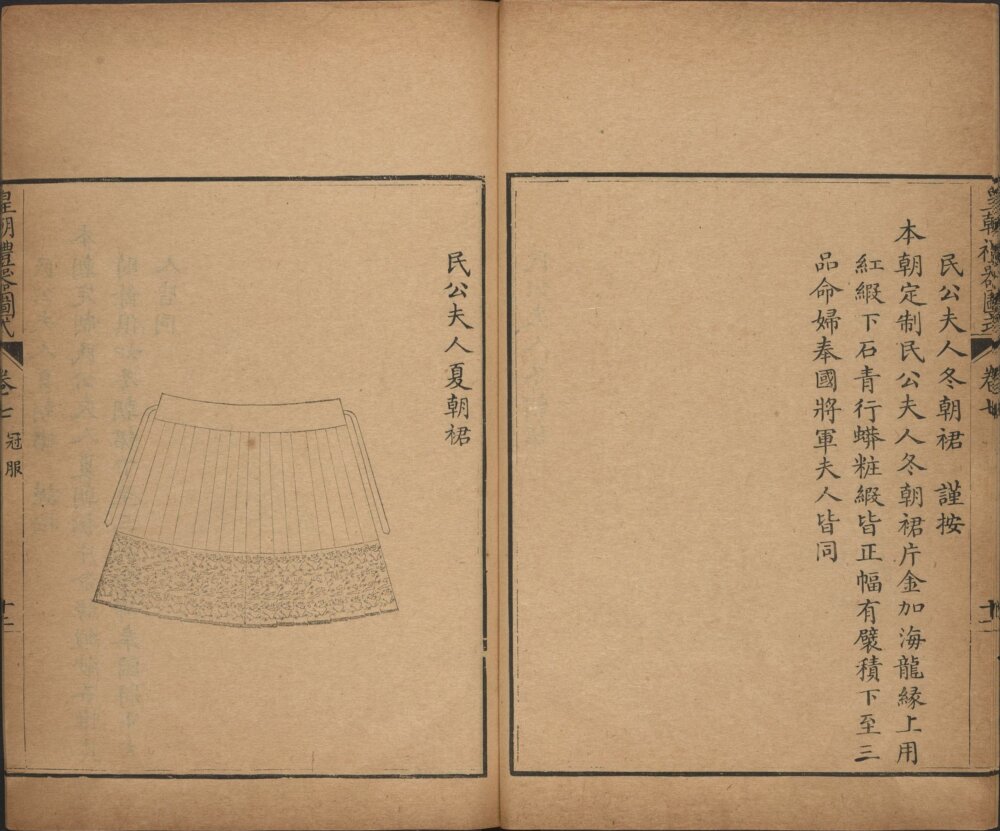 皇朝禮器圖式 卷七 十一
民公夫人冬朝裙 謹按
本朝定制民公夫人冬朝裙片金加海龍緣上用
紅緞下石青行蟒粧緞皆正幅有襞積下至三
品命婦奉國將軍夫人皆同
民公夫人夏朝裙
皇朝禮器圖式 卷七 冠服 十二